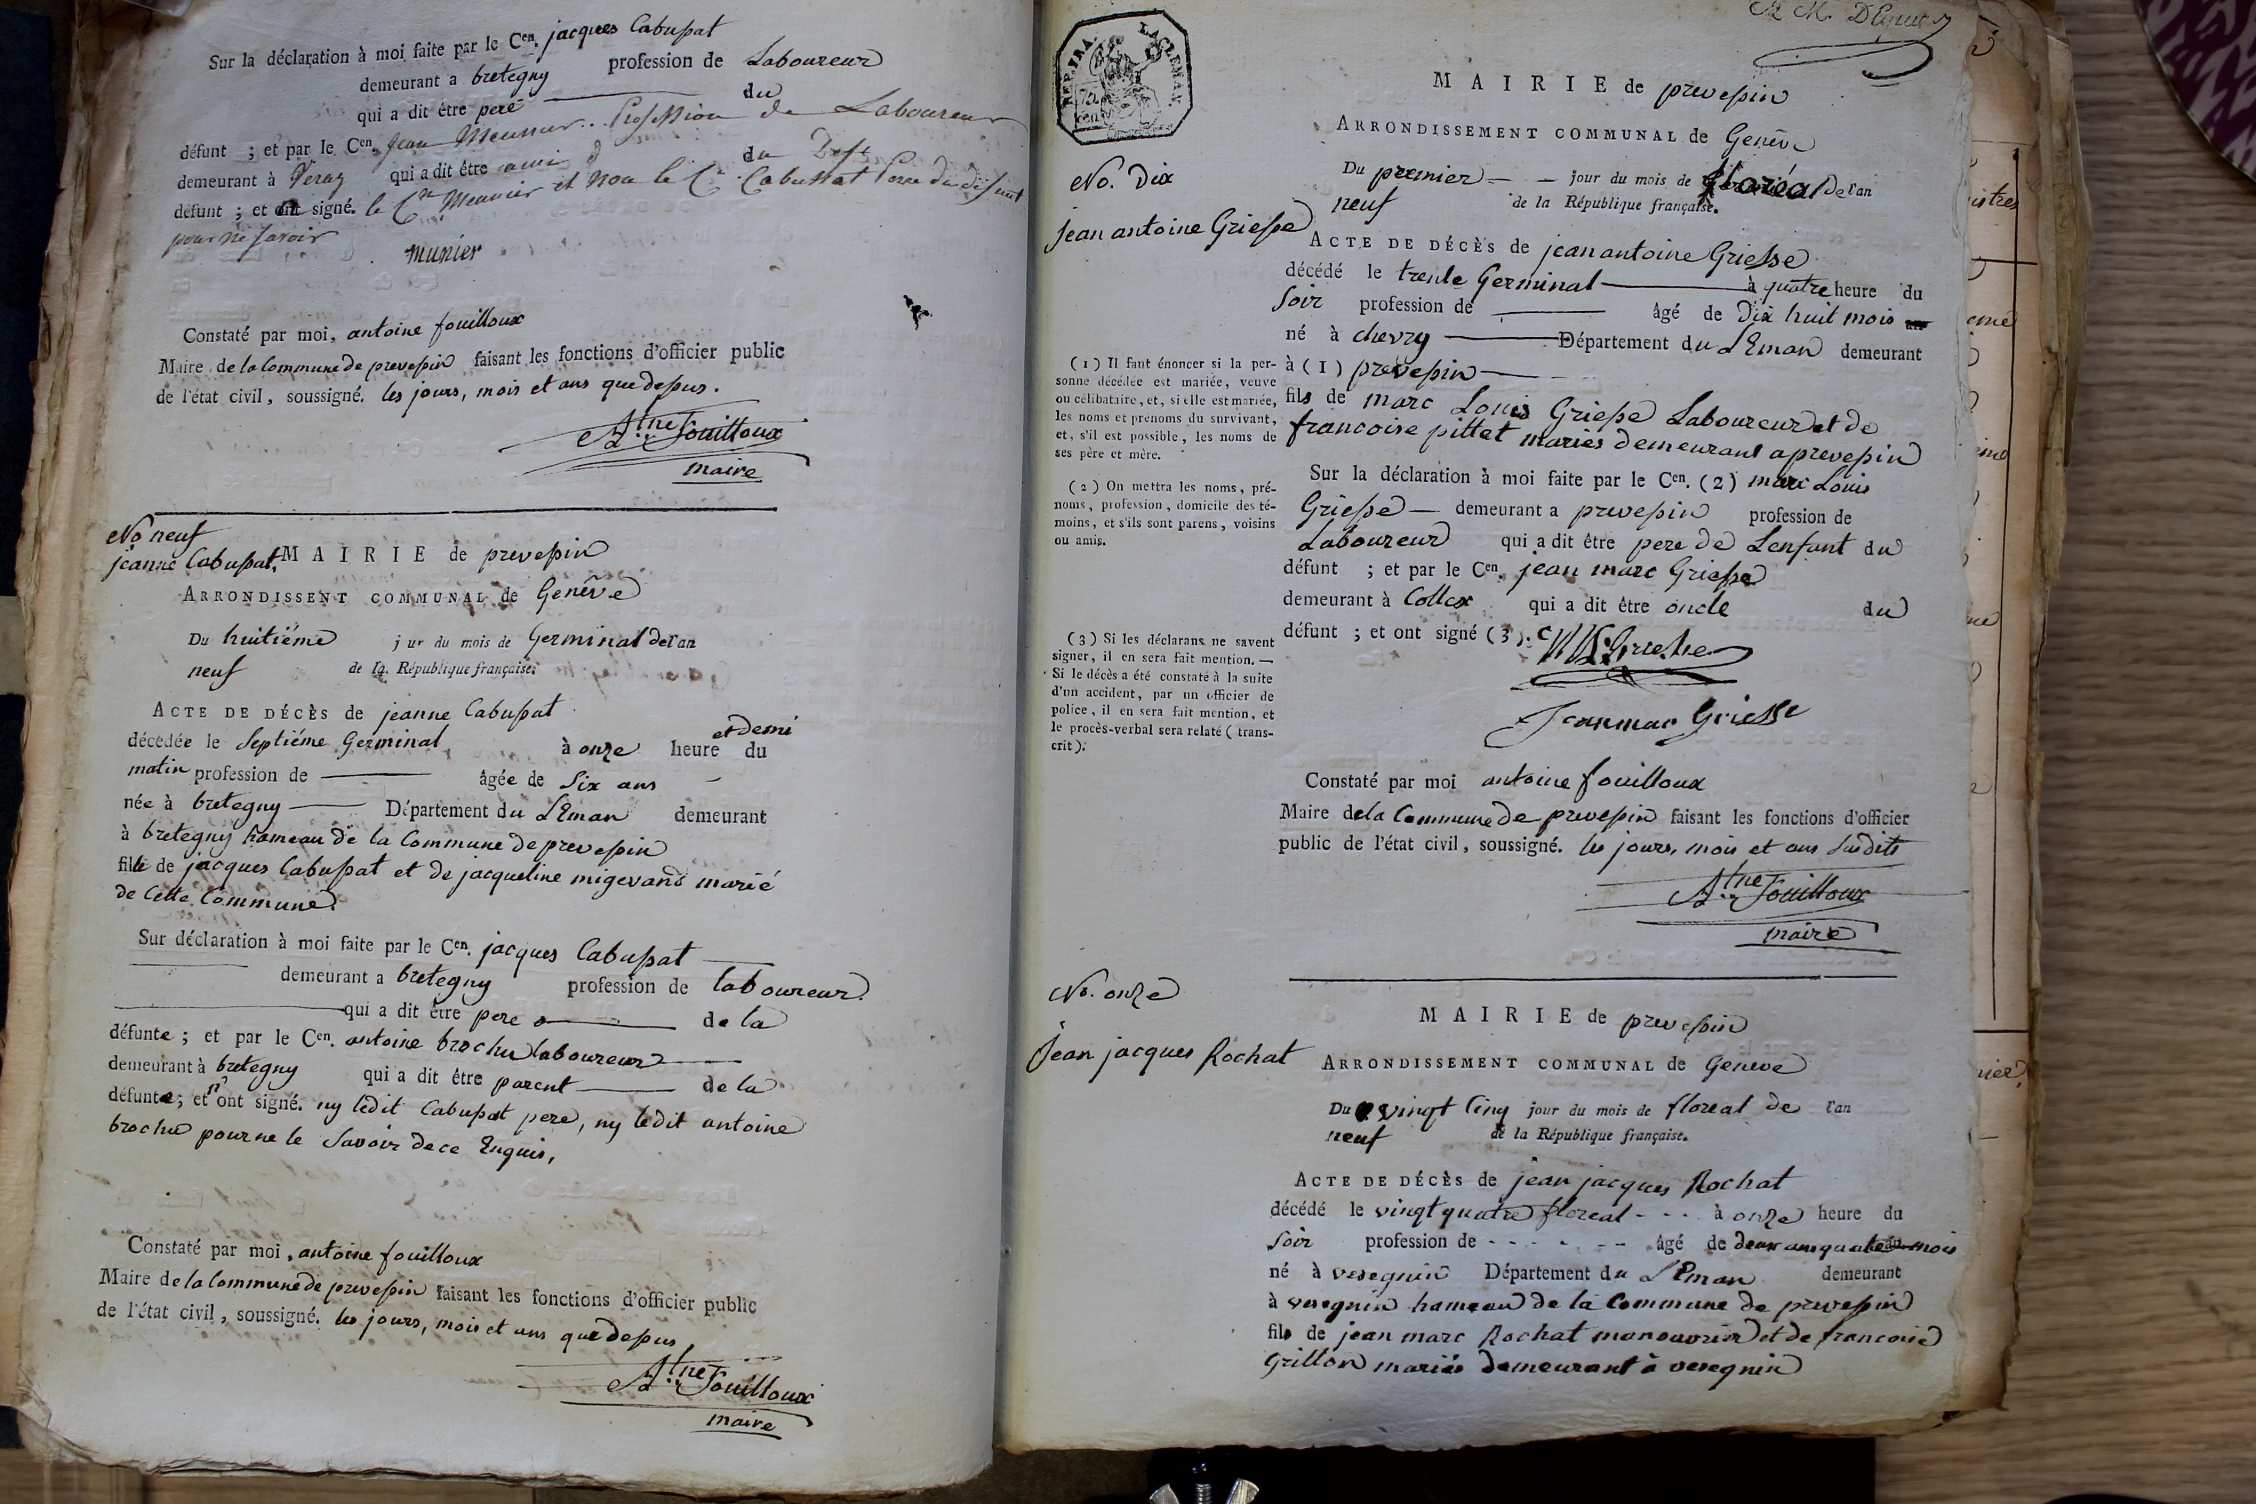 Sur la déclaration à moi faite par le Cen. jacques Cabussat
demeurant a bretegny profession de Laboureur
qui a dit être pere du
défunt ; et par le Cen. Jean Meunier. Profession de Laboureur
demeurant à Veraz qui a dit être ami du Deft
défunt ; et ont signé. le Cn Meunier et non le Cn Cabussat Pere du défunt
pour ne savoir
munier
Constaté par moi, antoine fouilloux
Maire de la Commune de prevessin faisant les fonctions d'officier public
de l'état civil, soussigné. les jours, mois et ans que depus.
Atne Fouilloux
maire
No neuf
jeanne Cabussat.
MAIRIE de prevessin
ARRONDISSENT COMMUNAL de Genêve
Du huitiéme j ur du mois de Germinal de l'an
neuf de la République française.
ACTE DE DÉCÈS de jeanne Cabussat
décédée le Septiéme Germinal à onze heure et demi du
matin profession de âgée de Six ans
née à bretegny Département du LEman demeurant
à bretegny hameau de la Commune de prevessin
fille de jacques Cabussat et de jacqueline migevand marié
de Cette Commune.
Sur déclaration à moi faite par le Cen. jacques Cabussat
demeurant a bretegny profession de laboureur.
qui a dit être pere de la
défunte ; et par le Cen. antoine brochu laboureur
demeurant à bretegny qui a dit être parent de la
défunte ; et n'ont signé. ny ledit Cabussat pere, ny ledit antoine
brochu pour ne le Savoir de ce Enquis,
Constaté par moi, antoine fouilloux
Maire de la Commune de prevessin faisant les fonctions d'officier public
de l'état civil, soussigné. les jours, mois et ans que depus,
Atne Fouilloux
maire
REP. FRA.
MAIRIE de prevessin
ARRONDISSEMENT COMMUNAL de Genêve
No. Dix
jean antoine Griesse
Du premier jour du mois de floréal De l'an
neuf de la République française.
ACTE DE DÉCÈS de jean antoine Griesse
décédé le trente Germinal à quatre heure du
Soir profession de âgé de Dix huit mois
né à chevry Département du LEman demeurant
à (1) prevessin
fils de marc Louis Griesse Laboureur et de
francoise pittet mariés demeurant a prevessin
(1) Il faut énoncer si la per-
sonne décédée est mariée, veuve
ou célibataire, et, si elle est mariée,
les noms et prénoms du survivant,
et, s'il est possible, les noms de
ses père et mère.
(2) On mettra les noms, pré-
noms, profession, domicile des té-
moins, et s'ils sont parens, voisins
ou amis.
(3) Si les déclarans ne savent
signer, il en sera fait mention. —
Si le décès a été constaté à la suite
d'un accident, par un officier de
police, il en sera fait mention, et
le procès-verbal sera relaté (trans-
crit).
Sur la déclaration à moi faite par le Cen. (2) marc Louis
Griesse demeurant a prevessin profession de
Laboureur qui a dit être pere de Lenfant du
défunt ; et par le Cen. jean marc Griesse
demeurant à Collex qui a dit être oncle du
défunt ; et ont signé (3).
Jeanmar Griesse
Constaté par moi antoine fouilloux
Maire de la Commune de prevessin faisant les fonctions d'officier
public de l'état civil, soussigné. les jours, mois et ans Susdits
Atne Fouilloux
maire
No. onze
Jean jacques Rochat
MAIRIE de prevessin
ARRONDISSEMENT COMMUNAL de Geneve
Du vingt Cinq jour du mois de floreal de l'an
neuf de la République française.
ACTE DE DÉCÈS de jean jacques Rochat
décédé le vingt quatre floreal à onze heure du
Soir profession de âgé de deux ans quatre mois
né à vesegnin Département du LEman demeurant
à vesegnin hameau de la Commune de prevessin
fils de jean marc Rochat manouvrier et de francoise
Grillon mariés demeurant à vesegnin